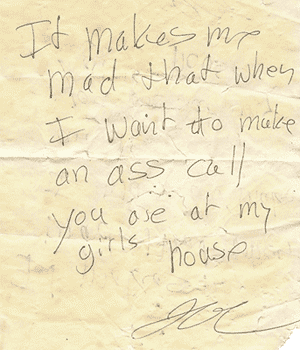 It makes me
mad that when
I want to make
an ass call
you are at my
girls house